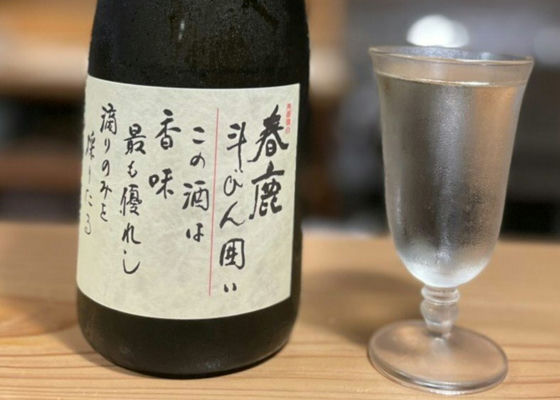 春鹿
斗びん囲い
この酒は
香味
最も優れし
滴りのみを
採りたる